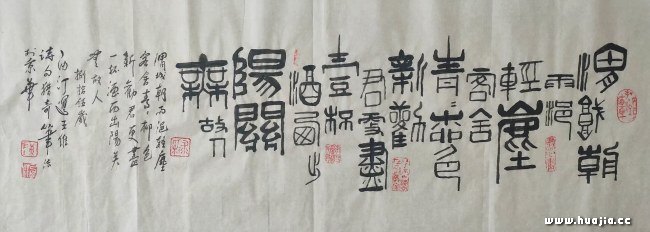 渭城朝
雨浥
輕塵
客舍
青青柳色
新勸
君更盡
壹杯
酒西出
陽關
無故人
渭城朝雨浥輕塵
客舍青青柳色
新勸君更盡
一杯酒西出陽關
無故人
王維
詩句
於京華
www.huajia.cc